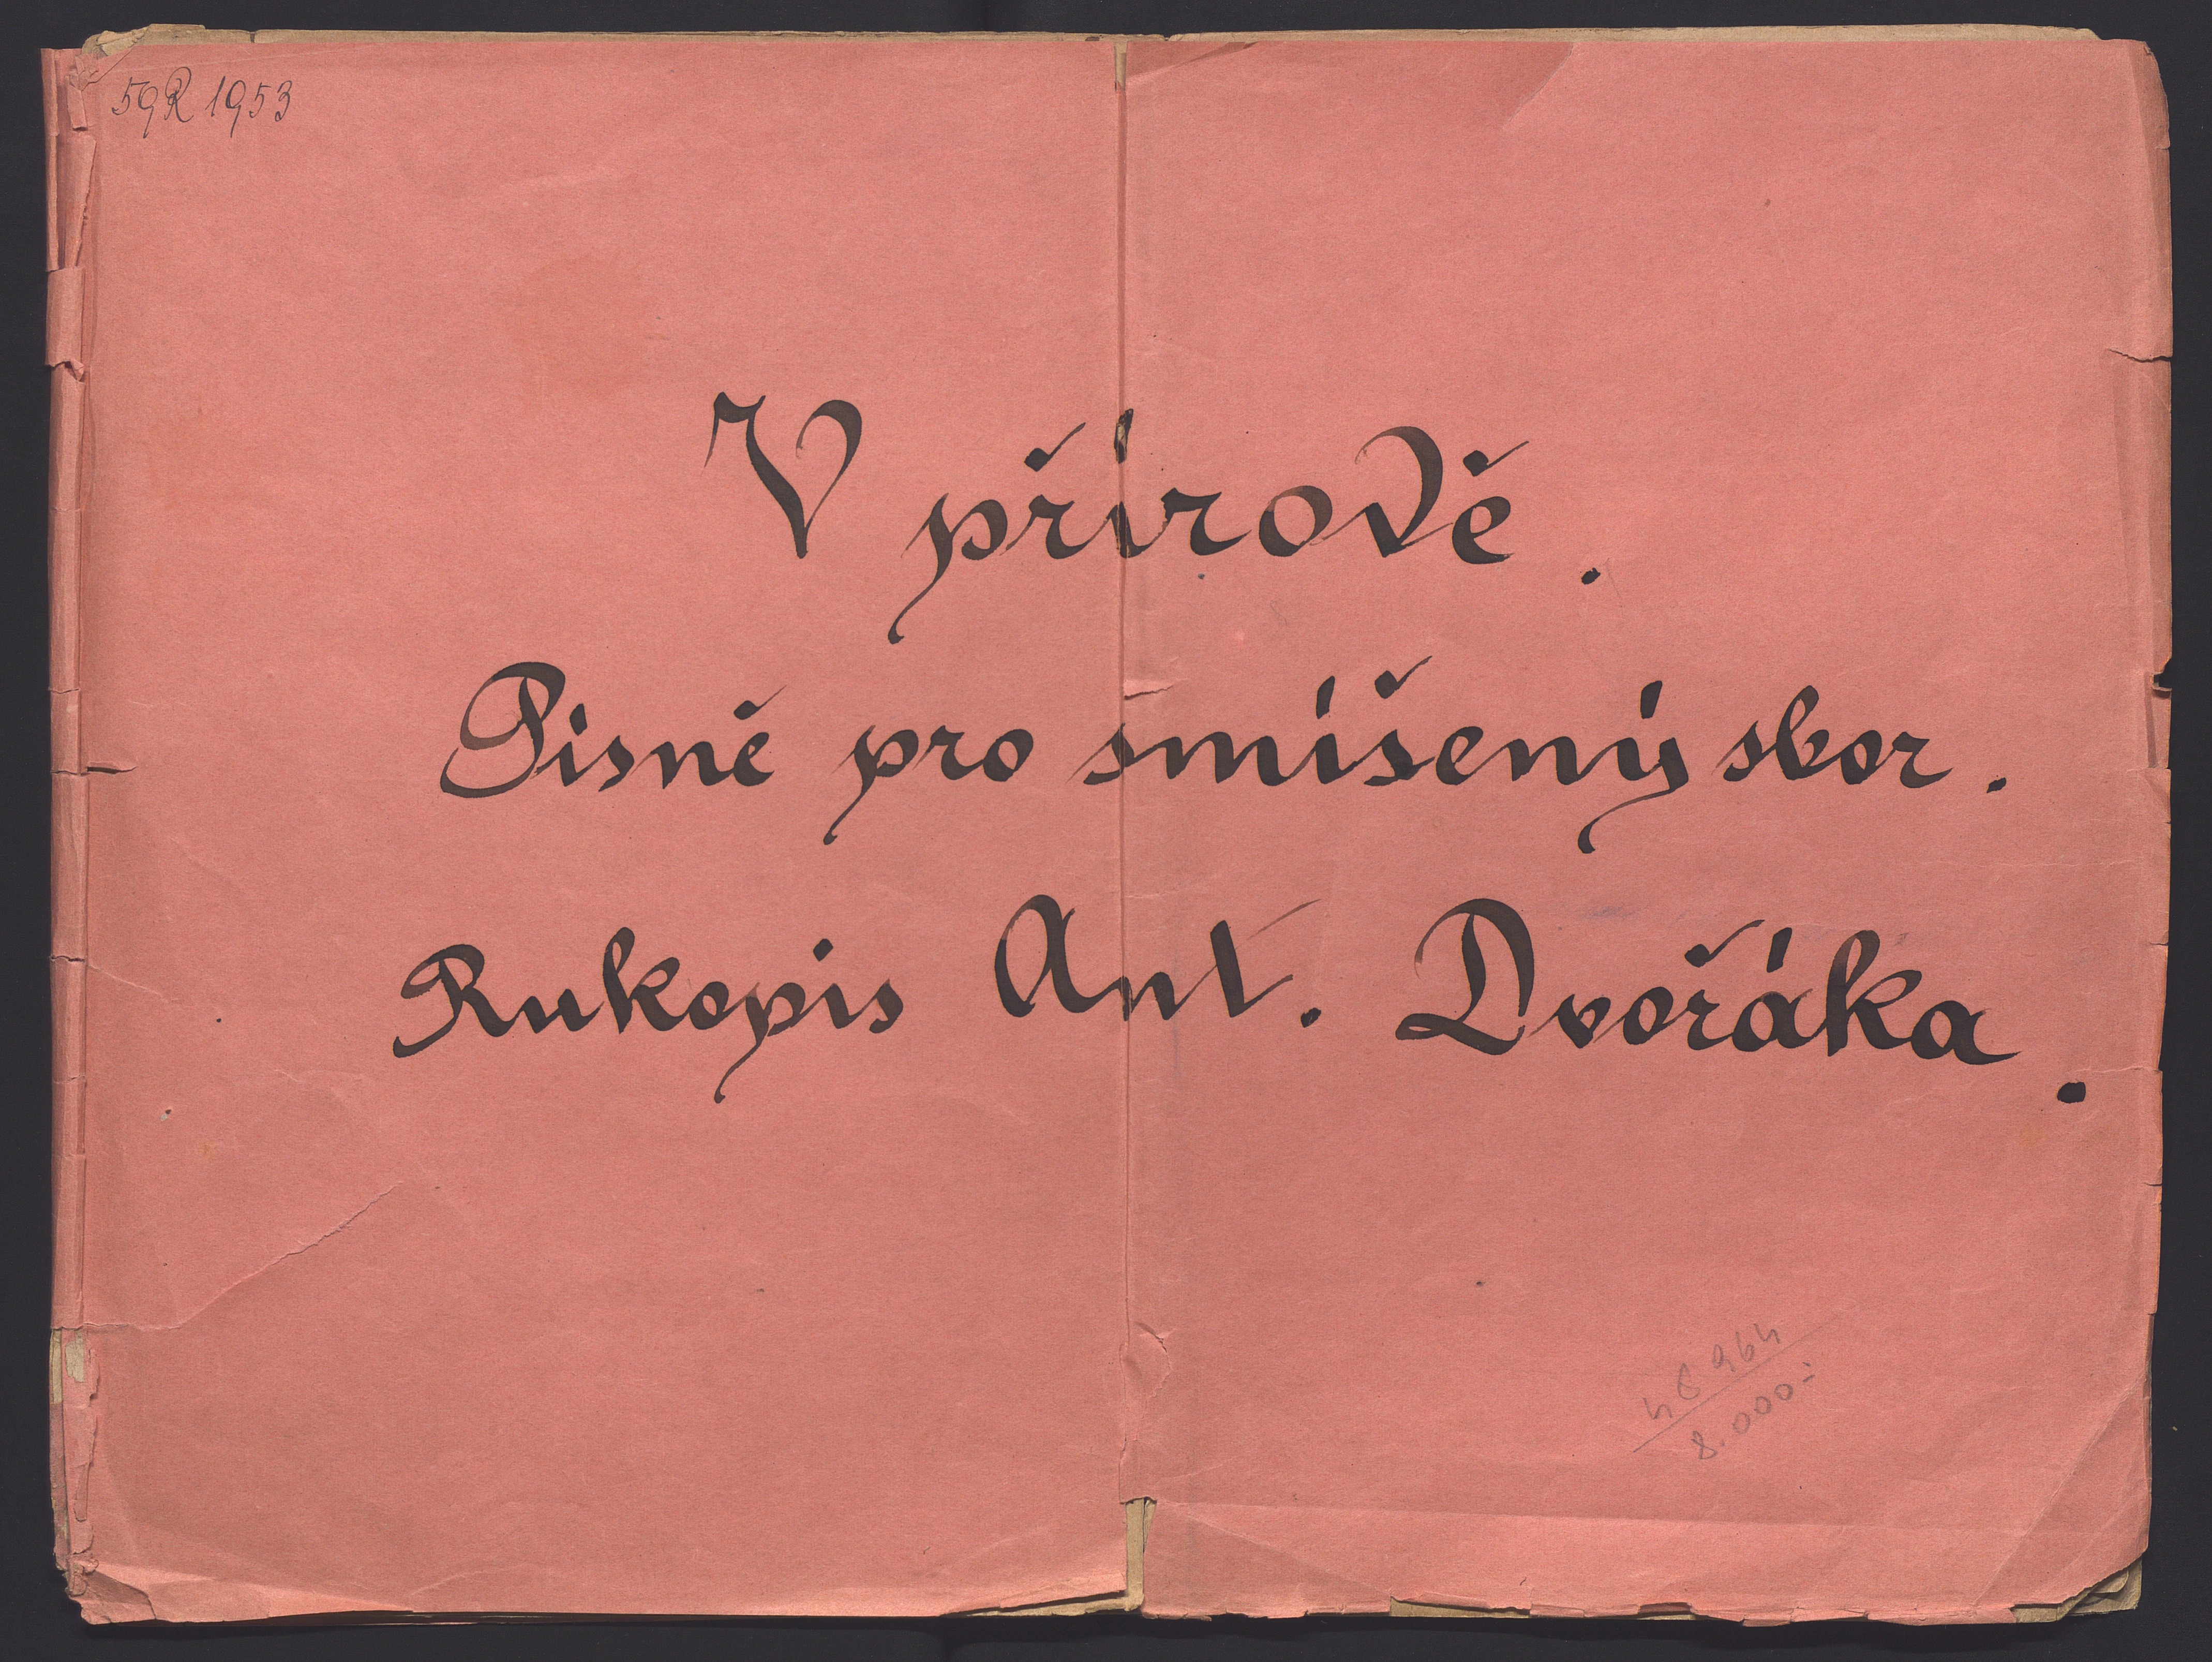 59R 1953
V přírodě.
Pisně pro smíšený sbor.
Rukopis Ant. Dvořáka.
964
8.000